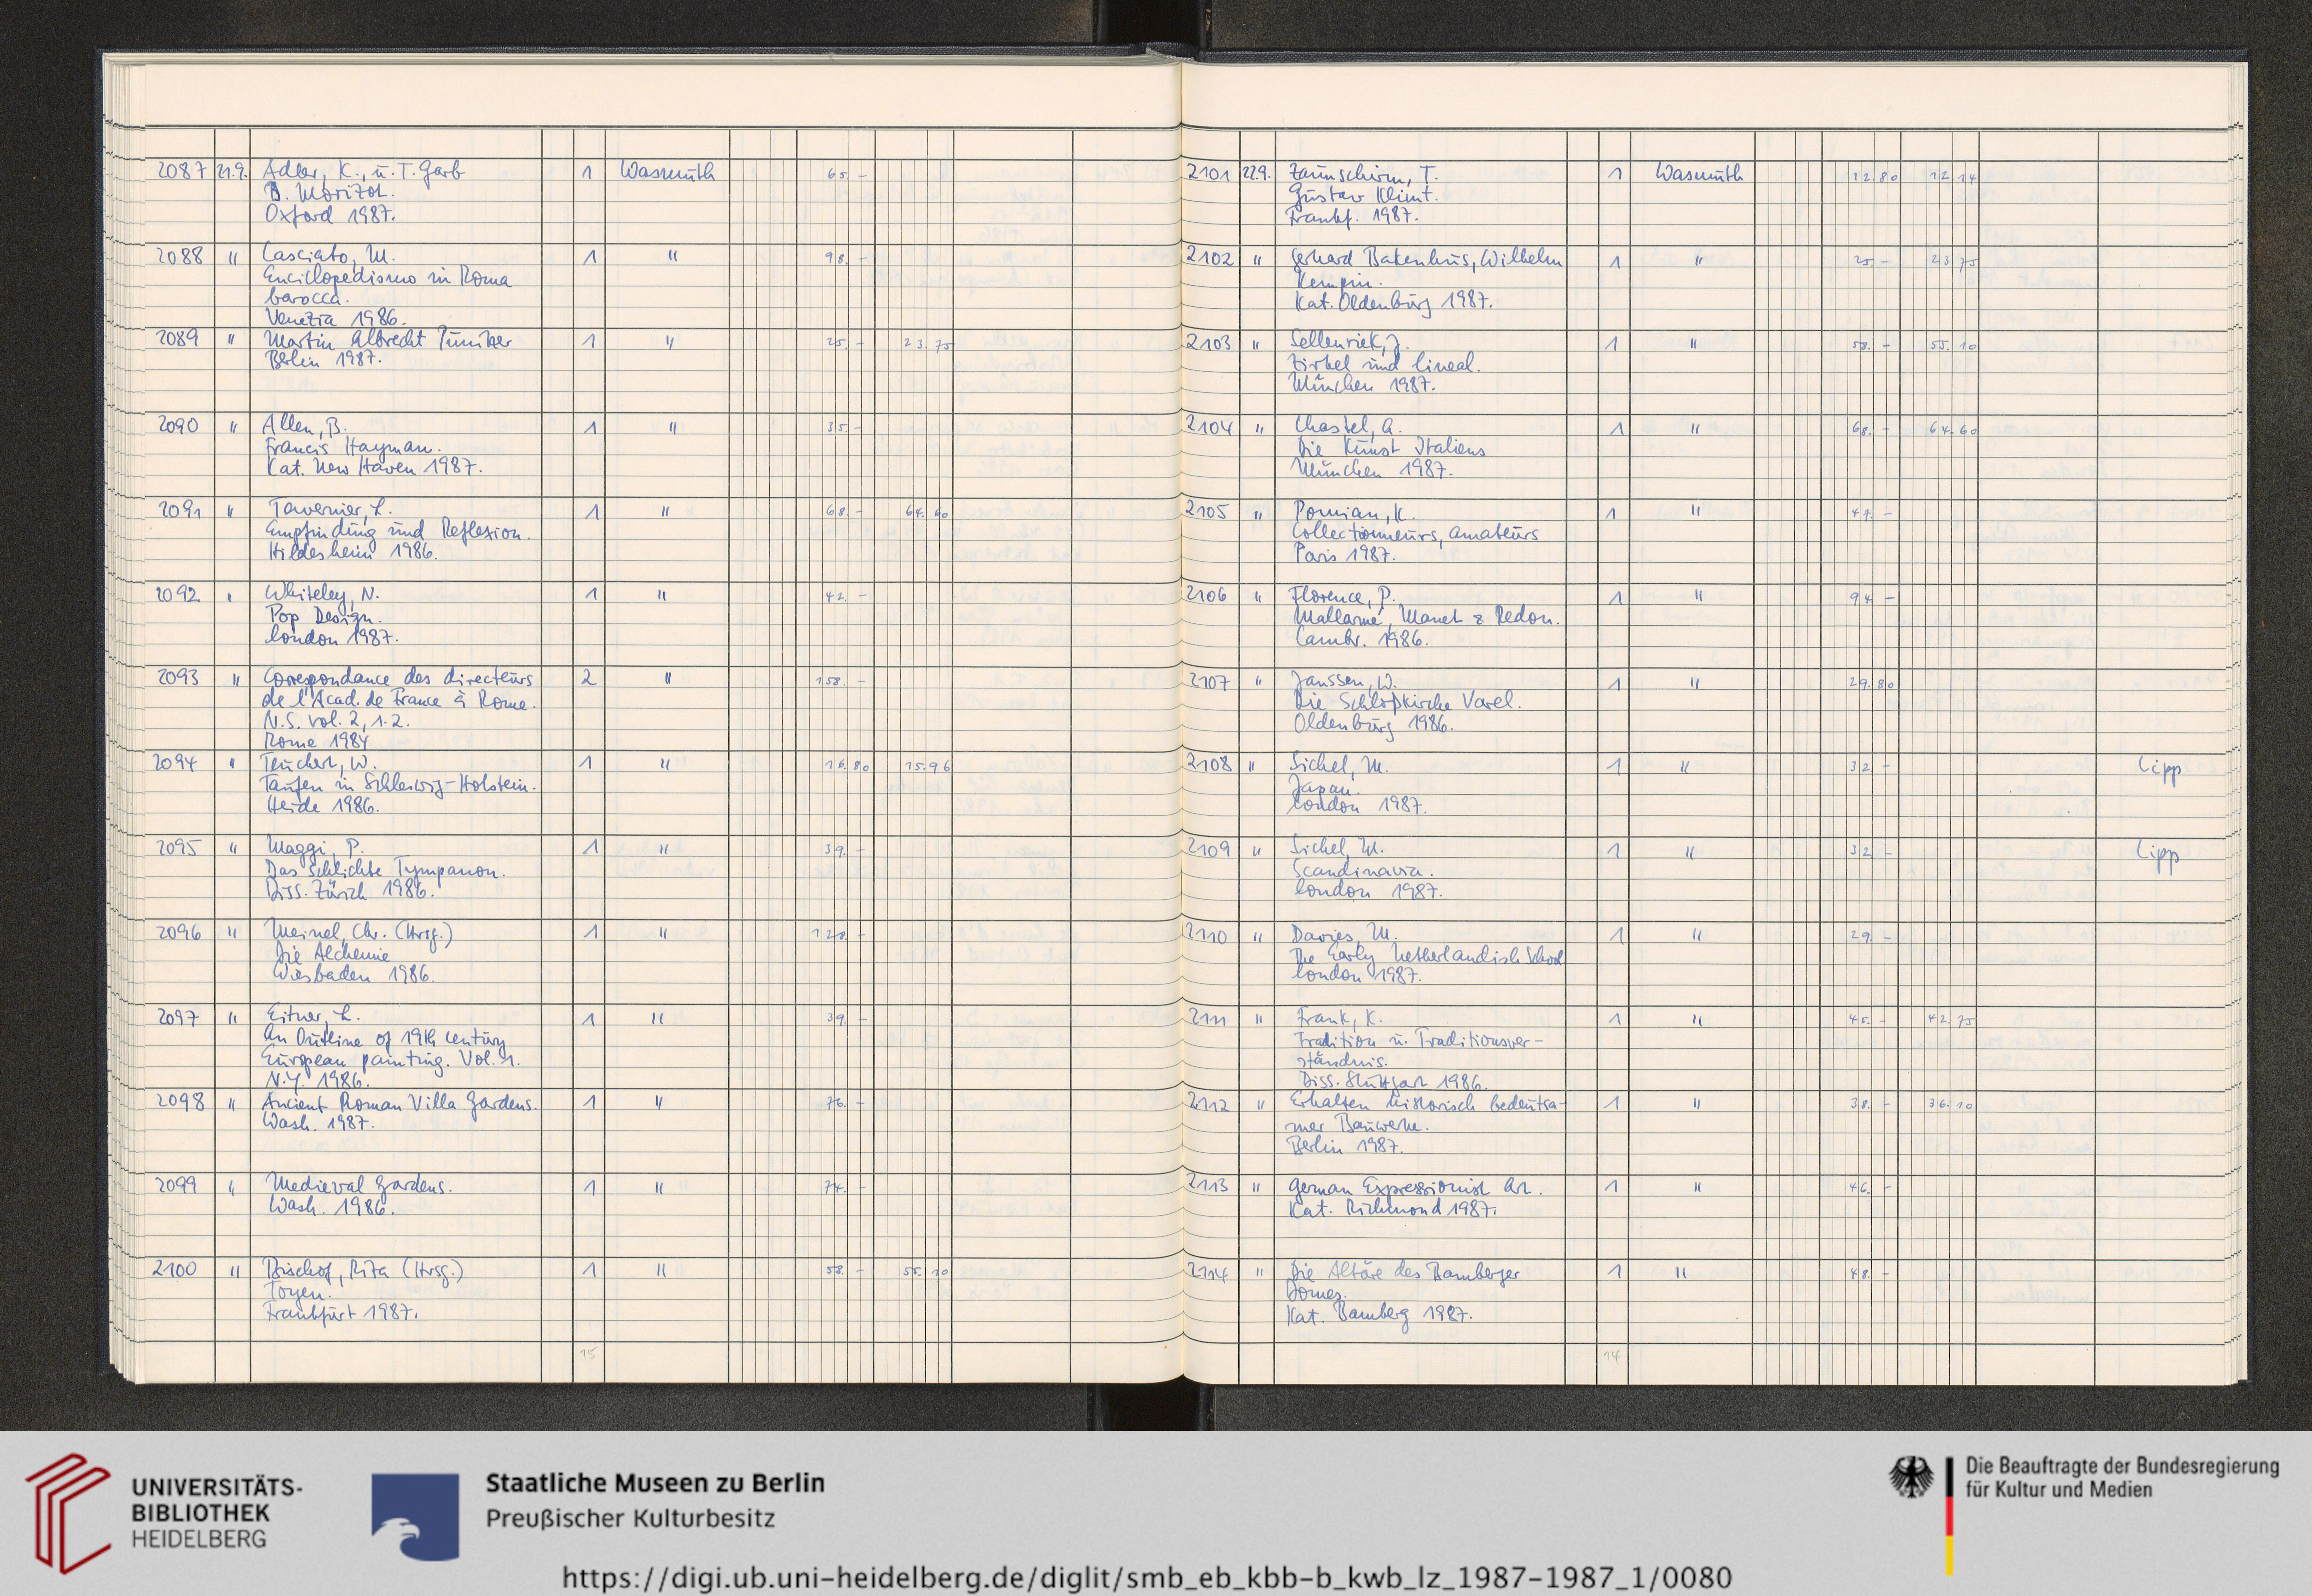 2087 21.9. Adler, K., u. T. Garb 1 Wasmuth 65. -
B. Morizot.
Oxford 1987.
2088 " Casciato, M. 1 " 98. -
Enciclopedismo in Roma
barocca.
Venezia 1986.
2089 " Martin Albrecht Punitzer 1 " 25. - 23.75
Berlin 1987.
2090 " Allen, B. 1 " 35. -
Francis Hayman.
Kat. New Haven 1987.
2091 " Tavernier, L. 1 " 68. - 64.60
Empfindung und Reflexion.
Hildesheim 1986.
2092 " Whiteley, N. 1 " 42. -
Pop Design.
London 1987.
2093 " Correspondance des directeurs 2 " 158. -
de l'Acad. de France à Rome.
N.S. vol. 2, 1.2.
Rome 1984
2094 " Teuchert, W. 1 " 16.80 15.96
Taufen in Schleswig-Holstein.
Heide 1986.
2095 " Maggi, P. 1 " 39. -
Das schlichte Tympanon.
Diss. Zürich 1986.
2096 " Meinel, Chr. (Hrsg.) 1 " 128. -
Die Alchemie
Wiesbaden 1986.
2097 " Eitner, L. 1 " 39. -
An Outline of 19th century
European painting. Vol. 1.
N.Y. 1986.
2098 " Ancient Roman Villa Gardens. 1 " 76. -
Wash. 1987.
2099 " Medieval Gardens. 1 " 74. -
Wash. 1986.
2100 " Bischof, Rita (Hrsg.) 1 " 58. - 55.10
Toyen.
Frankfurt 1987.
15
2101 22.9. Zaunschirm, T. 1 Wasmuth 12.80 12.14
Gustav Klimt.
Frankf. 1987.
2102 " Gerhard Bakenhus, Wilhelm 1 " 25 - 23.75
Kempin.
Kat. Oldenburg 1987.
2103 " Sellenriek, J. 1 " 58. - 55.10
Zirkel und Lineal.
München 1987.
2104 " Chastel, A. 1 " 68. - 64.60
Die Kunst Italiens
München 1987.
2105 " Pomian, K. 1 " 47. -
Collectionneurs, amateurs
Paris 1987.
2106 " Florence, P. 1 " 94 -
Mallarmé, Manet & Redon.
Cambr. 1986.
2107 " Janssen, W. 1 " 29.80
Die Schloßkirche Varel.
Oldenburg 1986.
2108 " Sichel, M. 1 " 32. - Lipp
Japan.
London 1987.
2109 " Sichel, M. 1 " 32 - Lipp
Scandinavia.
London 1987.
2110 " Davies, M. 1 " 29 -
The Early Netherlandish School
London 1987.
2111 " Frank, K. 1 " 45. - 42.75
Tradition u. Traditionsver-
ständnis.
Diss. Stuttgart 1986.
2112 " Erhalten historisch bedeutsa- 1 " 38. - 36.10
mer Bauwerke.
Berlin 1987.
2113 " German Expressionist Art. 1 " 46. -
Kat. Richmond 1987.
2114 " Die Altäre des Bamberger 1 " 48. -
Domes.
Kat. Bamberg 1987.
14
UNIVERSITÄTS-
BIBLIOTHEK
HEIDELBERG
Staatliche Museen zu Berlin
Preußischer Kulturbesitz
Die Beauftragte der Bundesregierung
für Kultur und Medien
https://digi.ub.uni-heidelberg.de/diglit/smb_eb_kbb-b_kwb_lz_1987-1987_1/0080